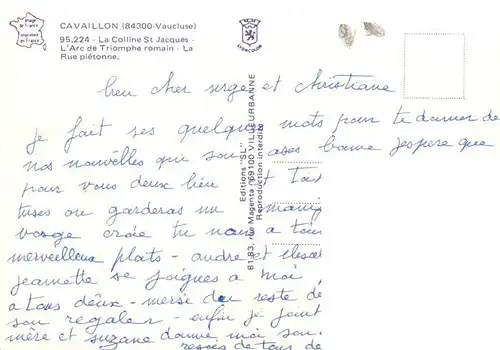 Image de France
imprimé en France
CAVAILLON (84300-Vaucluse)
95.224 - La Colline St Jacques -
L'Arc de Triomphe romain - La
Rue piétonne.
LYONCOLOR
Editions "S.L."
81-83, rue Magenta - 69100 VILLEURBANNE
Reproduction interdite
bien cher serge et christiane
je fait ses quelques mots pour te donner de
nos nouvelles qui sont ases bonne j'espere que
pour vous deux
ou garderas un
tu nous a
merveilleux plats - andre et
jeannette se joigues a moi
a tous deux - mersi du reste de
son regaler - enfin je joint
mère et suzane donne moi son
de tous de